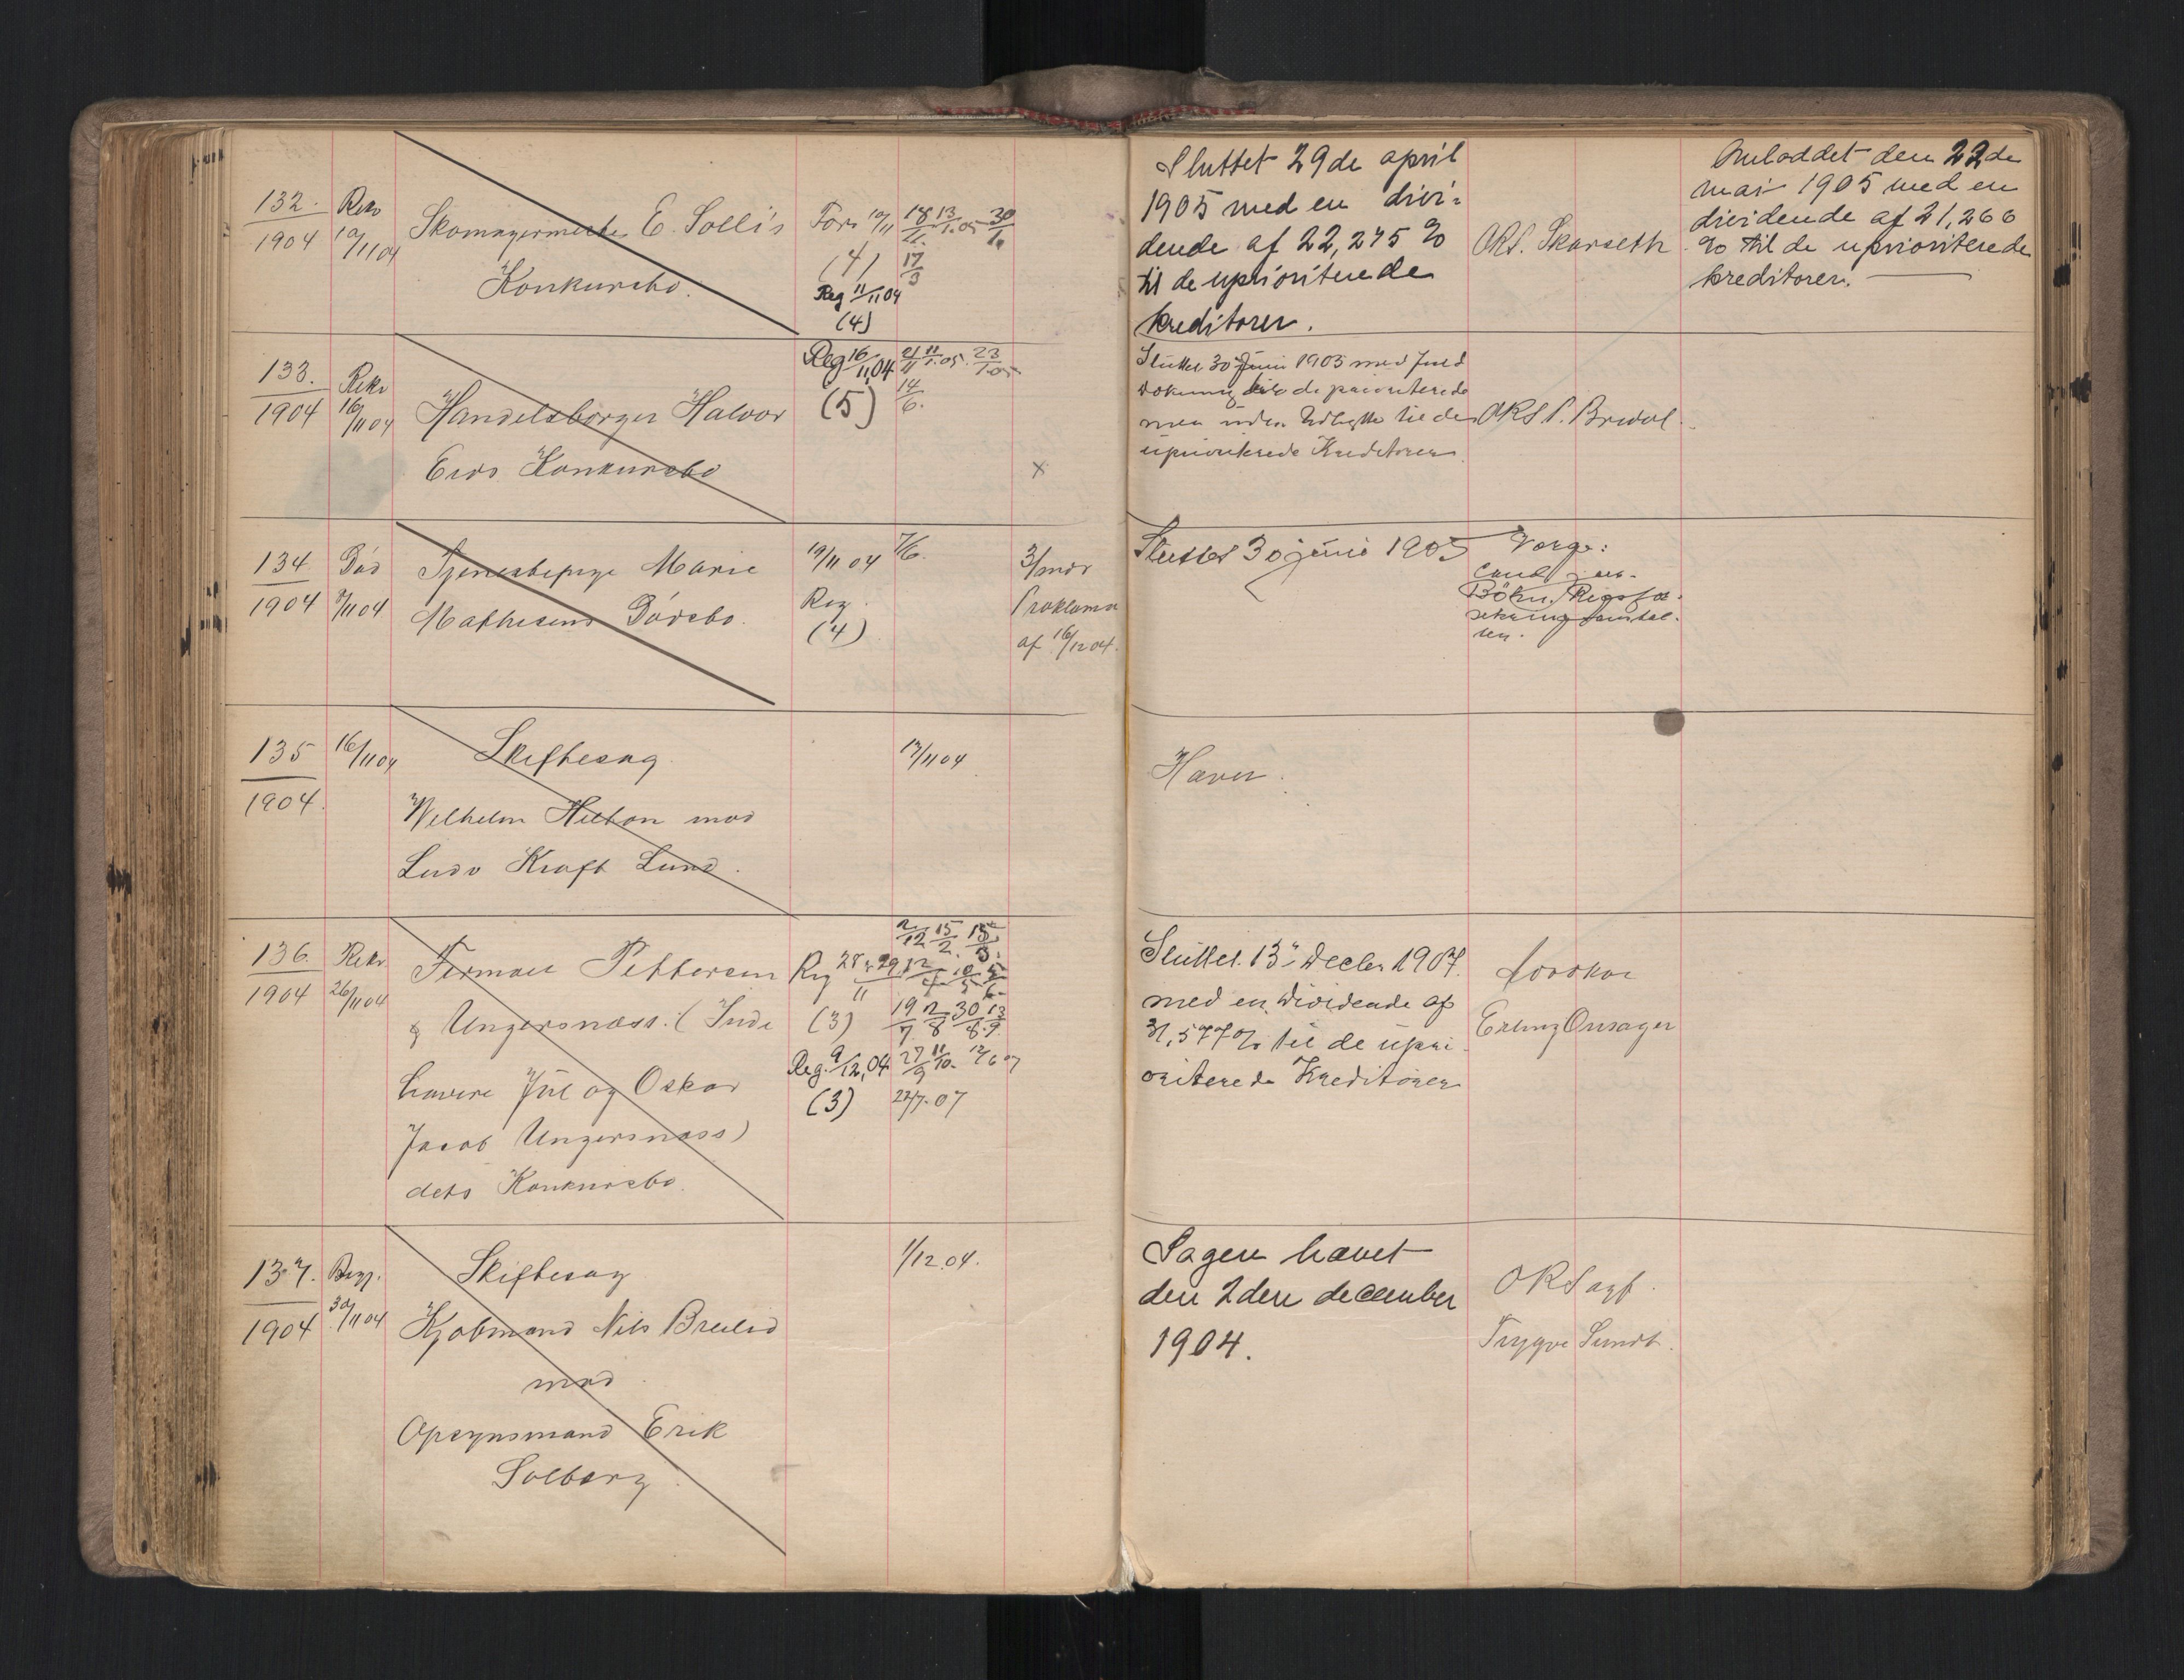 132.
1904
Rekv
10/11 04
Skomagermester E. Solli's
Konkursbo.
Forr 10/11
(4)
Reg 11/11 04
(4)
18/11. 13/1.05 30/1.
17/3
Sluttet 29de april
1905 med en divi-
dende af 22,275 %
til de uprioriterede
kreditorer.
ORS. Skarseth
Omloddet den 22de
mai 1905 med en
dividende af 21,266
% til de uprioriterede
kreditorer.
133.
1904
Rekv
16/11 04
Handelsborger Halvor
Eids Konkursbo
Reg 16/11,04
(5)
21/11 11/1.05. 23/1.05
14/6.
x
Sluttet 30 Juni 1905 med fuld
Dækning til de prioriterede
men uden Udbytte til de
uprioriterede Kreditorer
ORS P. Bredal.
134.
1904
Död
7/11 04
Tjenestepige Marie
Mathisens Dödsbo.
19/11 04
Reg.
(4)
7/6.
3/mdrs
Proklama
af 16/12 04.
Sluttet 30 juni 1905
Værge:
Cand jur.
Böhn. Rigsfor-
sikringsanstal-
ten.
135
1904.
16/11 04
Skiftesag
Wilhelm Hilton mod
Ludv Kraft Lund.
17/11 04
Hævet.
136.
1904
Rekv
26/11 04
Firmaet Pettersen
& Ungersnæss. (Inde
havere Jul og Oskar
Jacob Ungersnæss)
dets Konkursbo.
Reg 28 & 29/11
(3)
Reg. 9/12,04
(3)
2/12 15/2. 15/3.
12/4 10/5 5/6.
19/7 12/8 30/8. 13/9.
27/9 11/10. 12/6 07
22/7. 07
Sluttet. 13' Decbr 1907.
med en Dividende af
31,577 % til de upri
oriterede Kreditorer
Advokat
Erling Onsager
137.
1904
Begj.
30/11 04
Skiftesag
Kjøbmand Nils Breilid
mod
Opsynsmand Erik
Solberg.
1/12.04.
Sagen hævet
den 2den december
1904.
ORSagf.
Trygve Sundt.